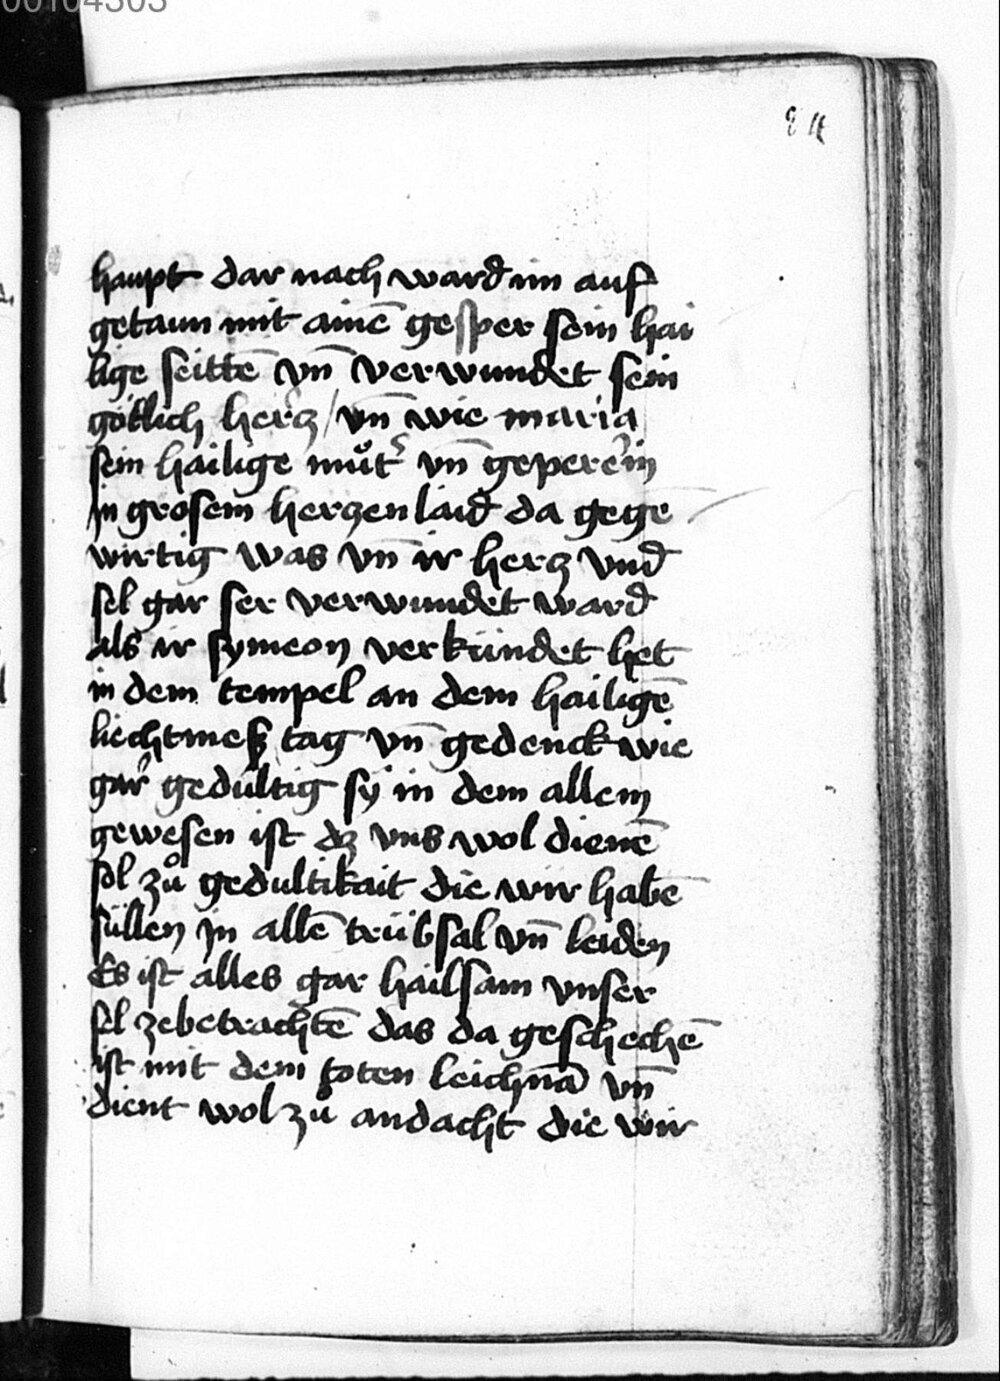 00104303
haupt dar nach ward im auf
getaun mit ainē gesper sein hai
lige seittē vn̄ verwundet sein
götlich hercz / vn̄ wie maria
sein hailige muͦt͛ vn̄ geperērin
in grosem herczen laid da gege
wirtig was vn̄ ir hercz vnd
sel gar ser verwundet ward
als ir symeon verkündet het
in dem tempel an dem hailigē
liechtmeß tag vn̄ gedenck wie
gar gedultig sy in dem allem
gewesen ist dz vns wol dienē
sol zuͦ gedultikait die wir habē
süllen jn allē trübsal vn̄ leiden
Es ist alles gar hailsam vnser
sel zebetrachtē das da geschechē
ist mit dem toten leichnā vn̄
dient wol zuͦ andacht die wir